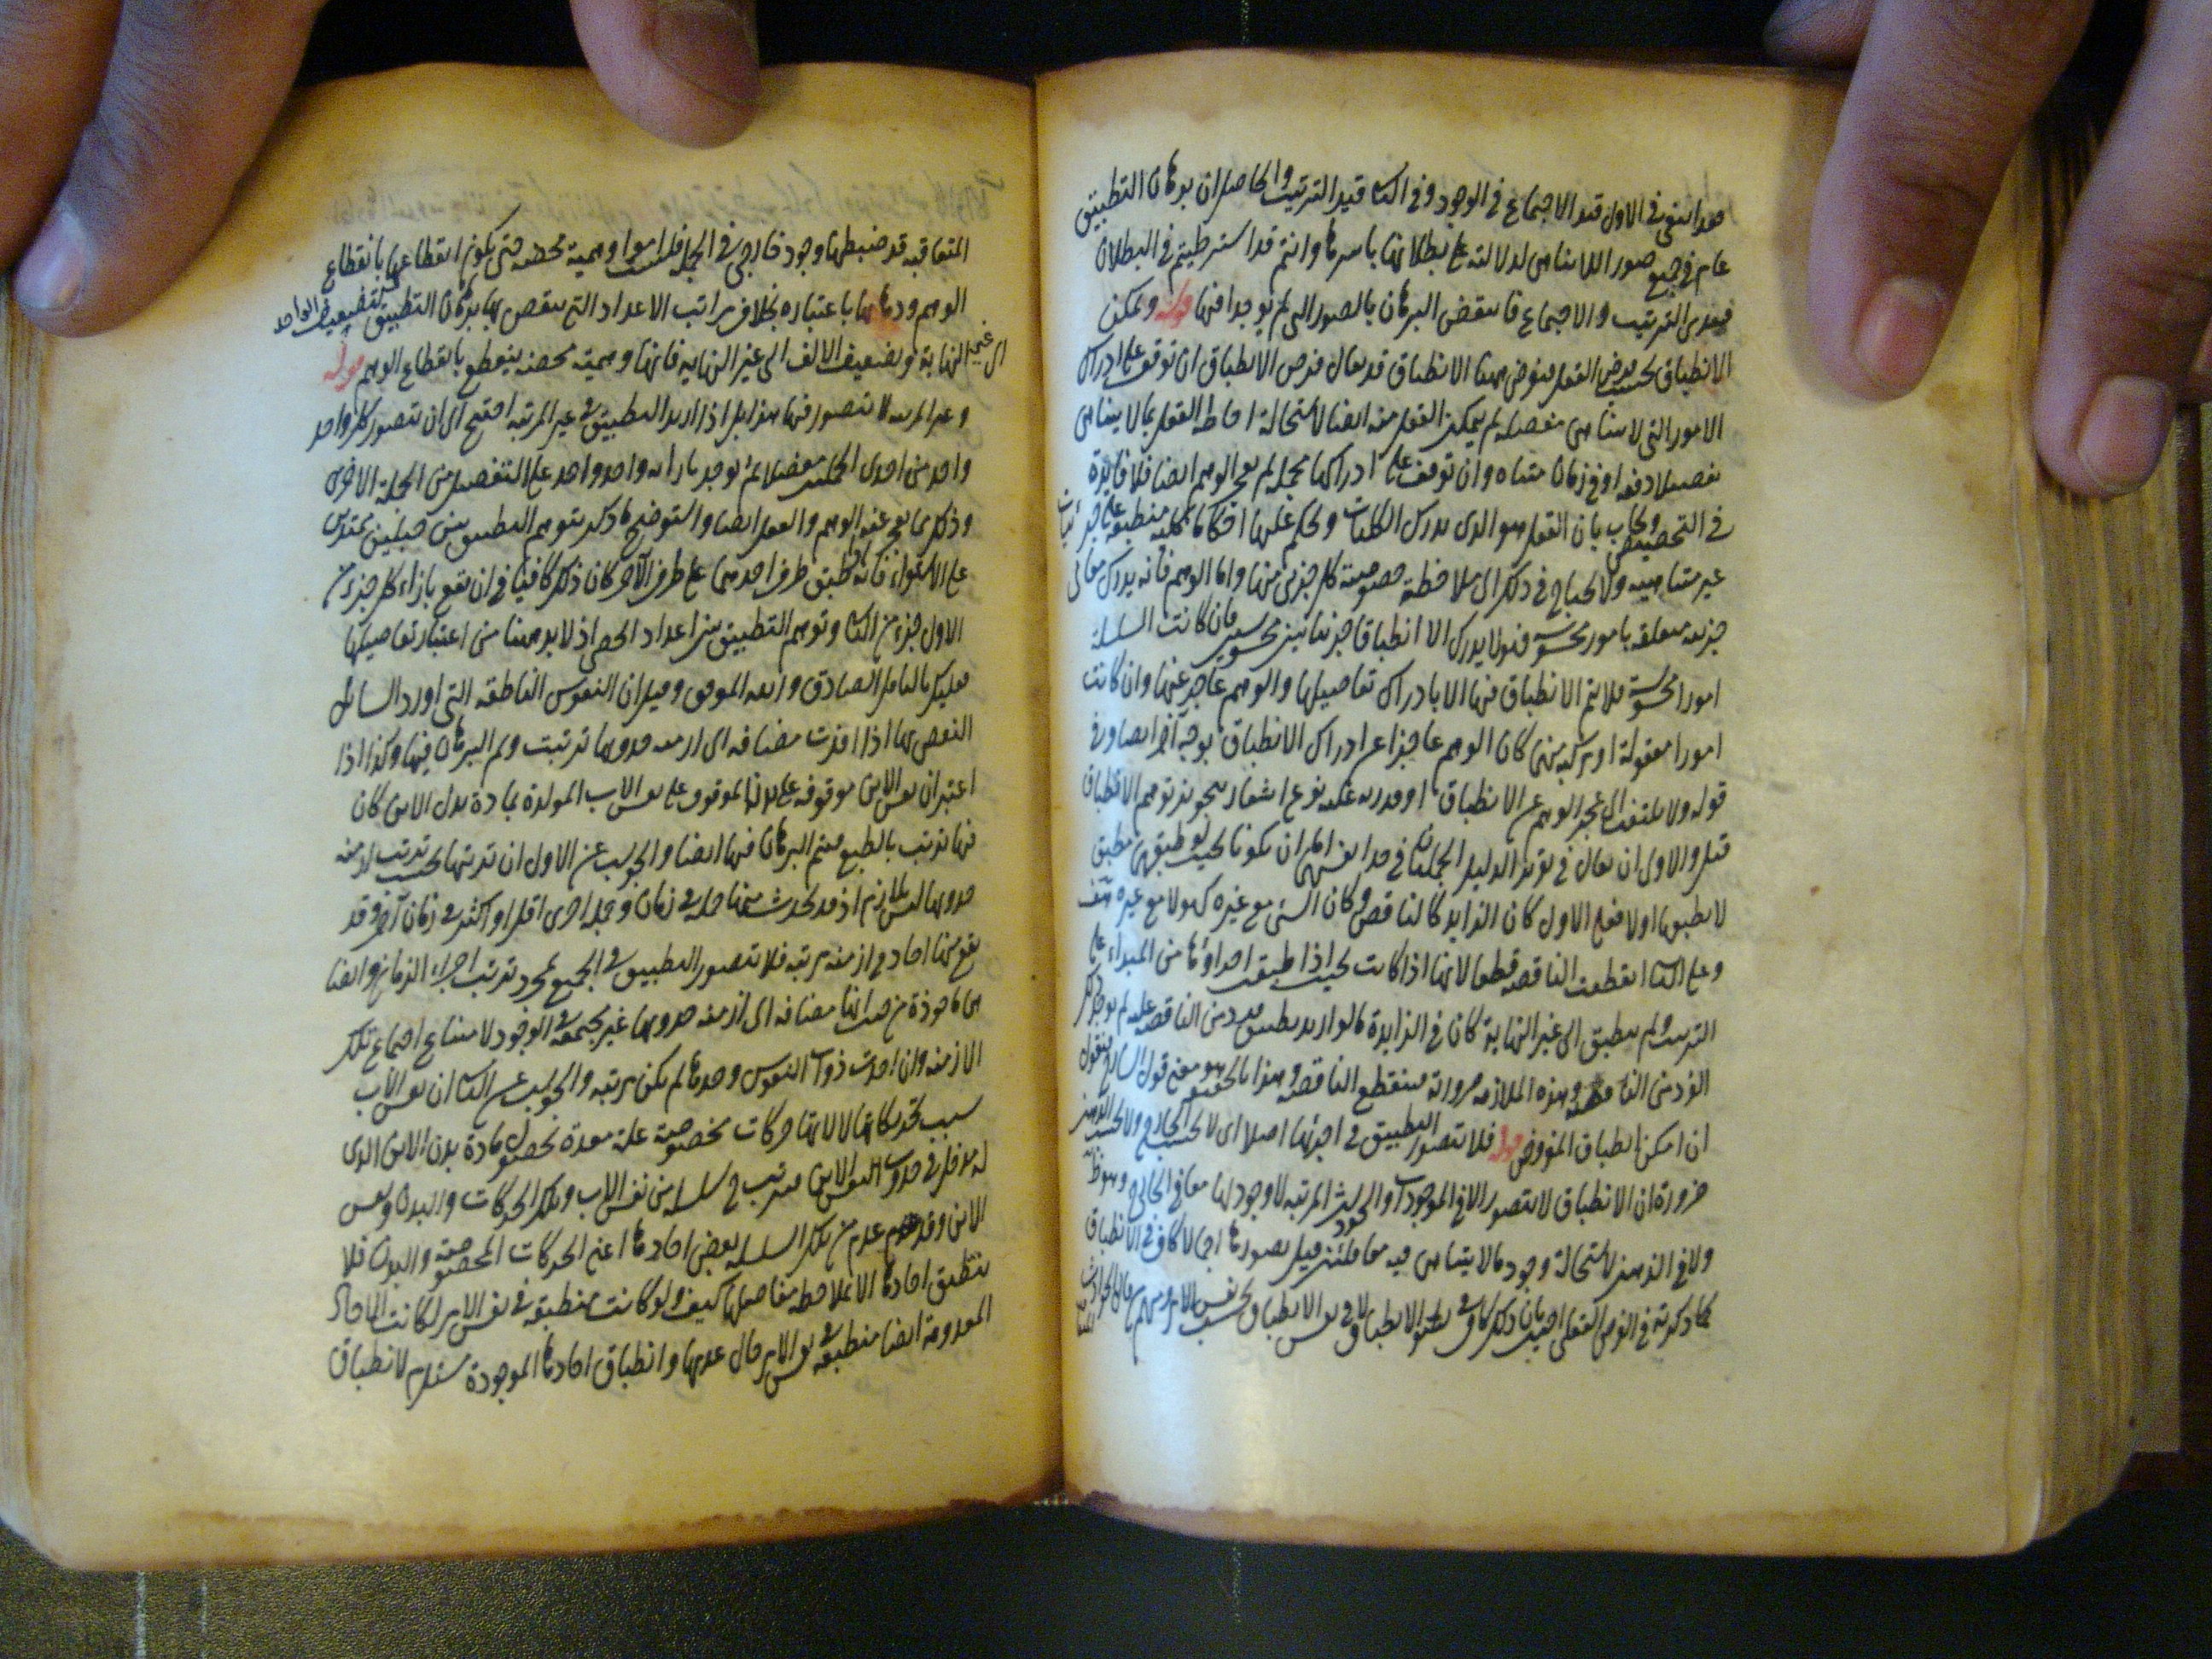 هذا انتفى في الاول قيد الاجتماع في الوجود وفي الثاني قيد الترتيب والحاصل ان برهان التطبيق
عام في جميع صور اللاتناهي لدلالته على بطلانها باسرها وانتم قد اشترطتم في البطلان
قيدي الترتيب والاجتماع فانتقض البرهان بالصور التي لم يوجدا فيها قوله ويمكن
الانطباق بحسب فرض العقل هنا الانطباق قد يقال فرض الانطباق ان توقف على ادراك
الامور التي لا تتناهى مفصلة لم يمكن العقل منه ايضا لاستحالة احاطة العقل بما لا يتناهى
تفصيلا دفعة او في زمان متناه وان توقف على ادراكها مجملة لم يعجز الوهم ايضا فلا فايدة
في التخصيص ويجاب بان العقل هو الذي يدرك الكليات ويحكم عليها احكاما كلية منطبقة على جزئيات
غير متناهية ولا يحتاج في ذلك الى ملاحظة خصوصية كل جزئي منها واما الوهم فانه يدرك معاني
جزئية متعلقة بامور محسوسة فهو لا يدرك الا انطباقا جزئيا بين محسوسين فان كانت السلسلة
امورا محسوسة فلا يتم الانطباق فيها الا بادراك تفاصيلها والوهم عاجز عنها وان كانت
امورا معقولة او مركبة منهما كان الوهم عاجزا عن ادراك الانطباق بوجه آخر ايضا وفي
قوله ولا يلتفت الى عجز الوهم عن الانطباق او قدرته عليه نوع اشعار بتجويز توهم الانطباق
قيل والاولى ان يقال في تقرير الدليل الجملتان في حد انفسهما اما ان تكونا بحيث لو طبق بهما تنطبق
لا نطبقها اولا فعلى الاول كان الزايد كالناقص وكان الشيء مع غيره كهو لا مع غيره هف
وعلى الثاني انقطعت الناقصة قطعا لانها اذا كانت بحيث اذا طبقت اجزاؤها من المبداء على
الترتيب ولم ينطبق الى غير النهاية كان في الزايدة ما لو اريد تطبيق فرد من الناقصة عليه لم يوجد ذلك
الفرد من الناقصة وهذه الملازمة ضرورية فينقطع الناقصة وهذا بالحقيقة هو معنى قول الشارح فنقول
ان امكن انطباق المفروض قوله فلا يتصور التطبيق في اجزئها اصلا اي لا بحسب الخارج ولا بحسب الذهن
ضرورة ان الانطباق لا يتصور الا في الموجودات والحوادث المرتبة لا وجود لها معا في الخارج وهو ظ
ولا في الذهن لاستحالة وجود ما لا يتناهى فيه معا فان قيل تصورها اجمالا كاف في الانطباق
كما ذكرته في الفرض العقلي اجيب بان ذلك كاف في الانطباق لا في نفس الانطباق بحسب نفس الامر
المتعاقبة قد ضبطها وجود خارجي في الجملة فليست امورا وهمية محضة حتى يكون انقطاعها بانقطاع
الوهم وذهابها باعتباره بخلاف مراتب الاعداد التي ينقص بها برهان التطبيق كتضعيف الواحد
الى غير النهاية وتضعيف الالف الى غير النهاية فانها وهمية محضة ينقطع بانقطاع الوهم قوله
وغير المرتبة لا يتصور فيها هذا بل اذا اريد التطبيق في غير المرتبة احتيج الى ان يتصور كل واحد
واحد من احدى الجملتين مفصلا ثم يوجد بازائه واحد واحد على التفصيل من الجملة الاخرى
وذلك مما يعجز عنه الوهم والعقل ايضا واستوضح ما ذكر بتوهم التطبيق بين حبلين ممتدين
على الاستواء فانه كاذا طبق طرف احدهما على طرف الآخر كان ذلك كافيا في ان يقع بازاء كل جزء من
الاول جزء من الثاني وتوهم التطبيق بين اعداد الحصى اذ لا بد هنا من اعتبار تفاصيلها
فعليك بالتامل الصادق والله الموفق وقيل ان النفوس الناطقة التي اورد السائل
النقض بها اذا اخذت مضافة الى ازمنة حدوثها ترتبت وتم البرهان فيها وكذا اذا
اعتبر ان نفس الابن موقوفة على بدنه الموقوف على نفس الاب المولدة لمادة بدن الابن كان
فيها ترتب بالطبع فيتم البرهان فيها ايضا والجواب عن الاول ان ترتبها بحسب ترتب ازمنة
حدوثها ليس بلازم اذ قد يحدث منها جملة في زمان وجملة اخرى اقل او اكثر في زمان آخر وقد
يقع منها احاد في ازمنة مرتبة فلا يتصور التطبيق في الجميع بمجرد ترتب اجزاء الزمان وايضا
هي ماخوذة من حيث انها مضافة الى ازمنة حدوثها غير مجتمعة في الوجود لامتناع اجتماع تلك
الازمنة وان اخذت ذوات النفوس وحدها لم يكن مرتبة والجواب عن الثاني ان نفس الاب
سبب تحريكاتها لالاتها حركات مخصوصة علة معدة لحصول مادة بدن الابن الذي
له مدخل في حدوث النفس الابن فيترتب في سلسلة من نفس الاب وتلك الحركات والبدن ونفس
الابن وقد عدم من تلك السلسلة بعض احادها اعني الحركات المخصوصة والبدن فلا
ينطبق احادها الا بملاحظة تفاصيلها كيف ولو كانت منطبقة في نفس الامر لكانت الاحاد
المعدومة ايضا منطبقة في نفس الامر حال عدمها وانطباق احادها الموجودة مستلزم لانطباق